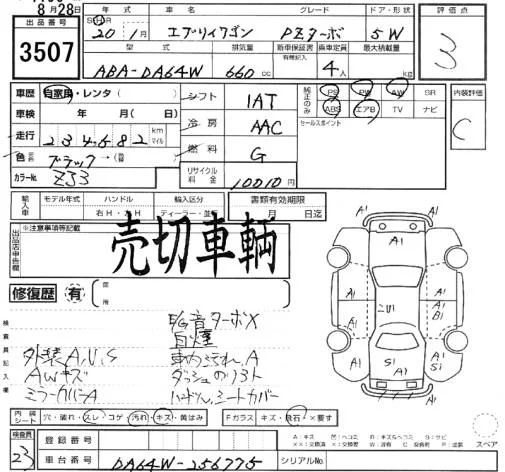 8月28日
出品番号
3507
年式 車名 グレード ドア・形状
S H R 20年 1月 エブリイワゴン PZターボ 5W
型式 排気量 新車保証書 有機記入 乗車定員 最大積載量
ABA-DA64W 660cc 4人 kg
評価点
3
車歴 自家用・レンタ( )
車検 年 月( 日)
走行 234682 km マイル
色 ブラック→
カラーNo. ZJ3
シフト IAT
冷房 AAC
燃料 G
リサイクル料金 10010円
純正のみ PS PW AW SR
ABS エアB TV ナビ
セールスポイント
内装評価
C
輸入車 モデル年式 ハンドル 輸入区分
年 右H・左H ディーラー・並行
書類有効期限
月 日迄
出品店申告欄 ※注意事項等記載
売切車輌
修復歴 有 箇所
検査員記入欄
外装A.U.S
AWキズ
ミラーカバーA
E/G音ターボX
自煙
車内汚れ.A
ダッシュのリ3ト
ハンドル,シートカバー
A1
A1 A1
A1 A1
B1
A1 S1 S1
A1
内装シート 穴・破れ・スレ・コゲ・汚れ・キズ・黄ばみ Fガラス キズ・飛石・×要す
検査員 23
登録番号
車台番号 DA64W-256775 シリアルNo.
スペア